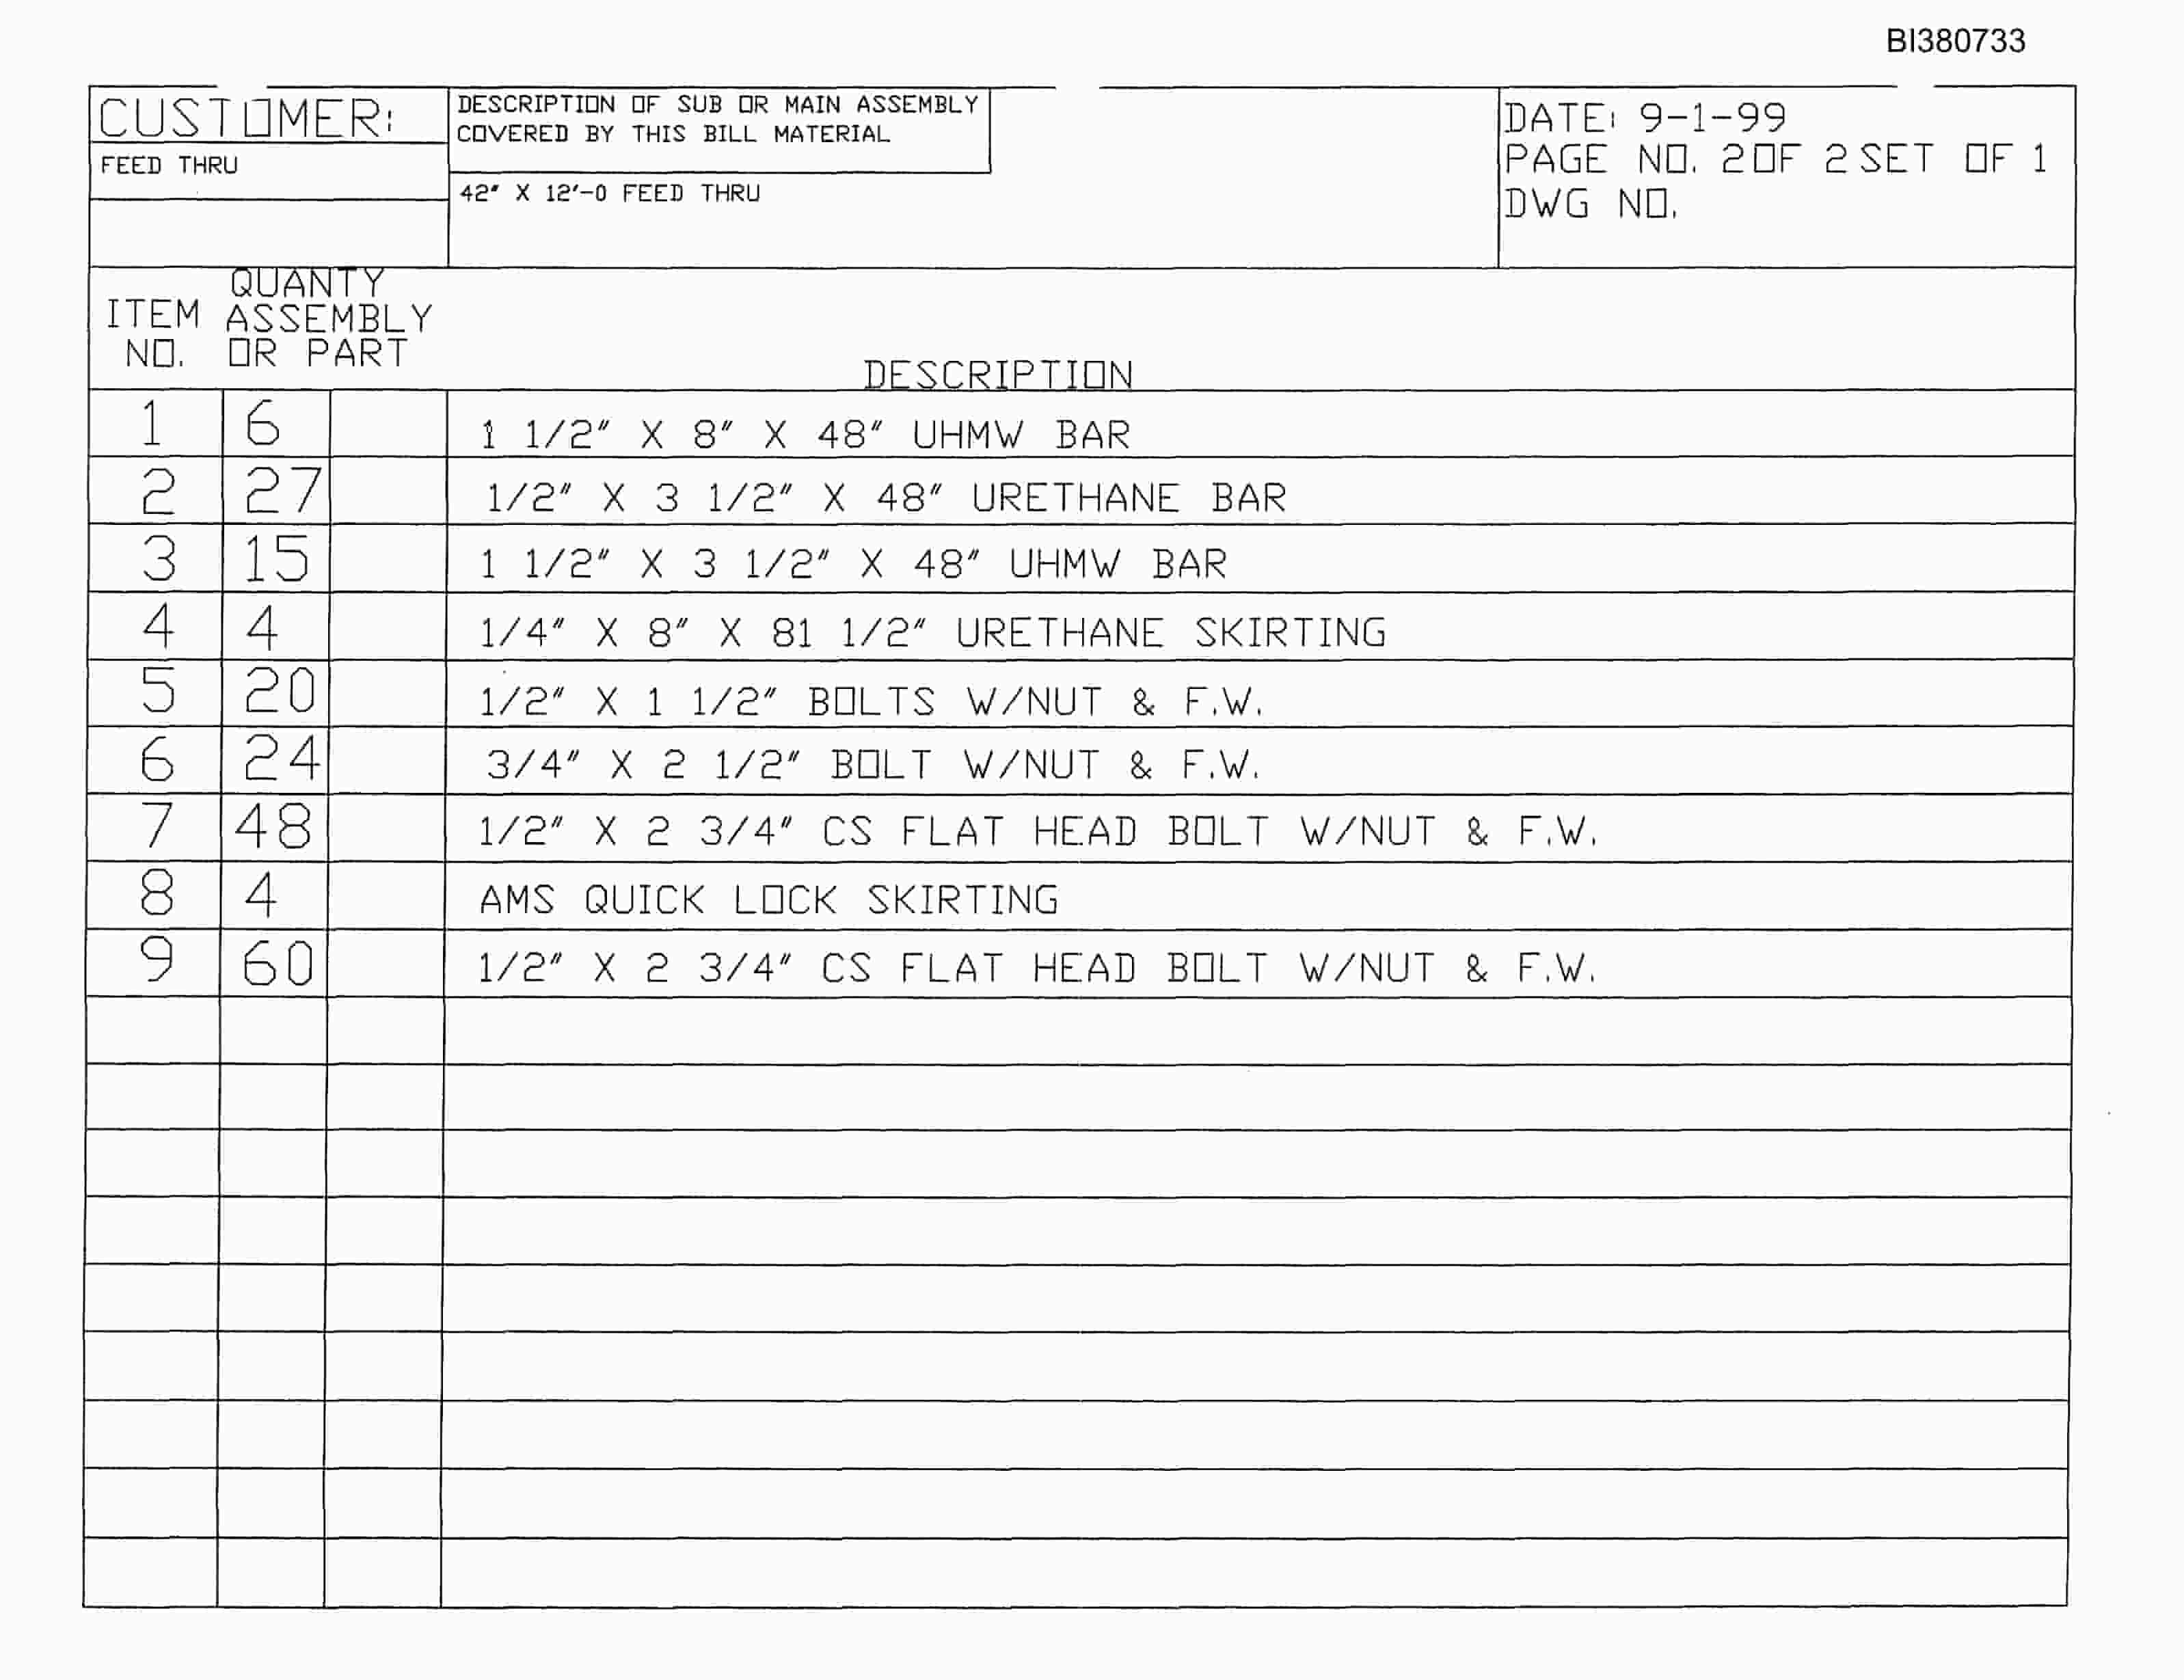 BI380733
CUSTOMER:
FEED THRU
DESCRIPTION OF SUB OR MAIN ASSEMBLY
COVERED BY THIS BILL MATERIAL
42" X 12'-0 FEED THRU
DATE: 9-1-99
PAGE NO. 2 OF 2 SET OF 1
DWG NO.
ITEM
NO.
QUANTY
ASSEMBLY
OR PART
DESCRIPTION
1 6 1 1/2" X 8" X 48" UHMW BAR
2 27 1/2" X 3 1/2" X 48" URETHANE BAR
3 15 1 1/2" X 3 1/2" X 48" UHMW BAR
4 4 1/4" X 8" X 81 1/2" URETHANE SKIRTING
5 20 1/2" X 1 1/2" BOLTS W/NUT & F.W.
6 24 3/4" X 2 1/2" BOLT W/NUT & F.W.
7 48 1/2" X 2 3/4" CS FLAT HEAD BOLT W/NUT & F.W.
8 4 AMS QUICK LOCK SKIRTING
9 60 1/2" X 2 3/4" CS FLAT HEAD BOLT W/NUT & F.W.